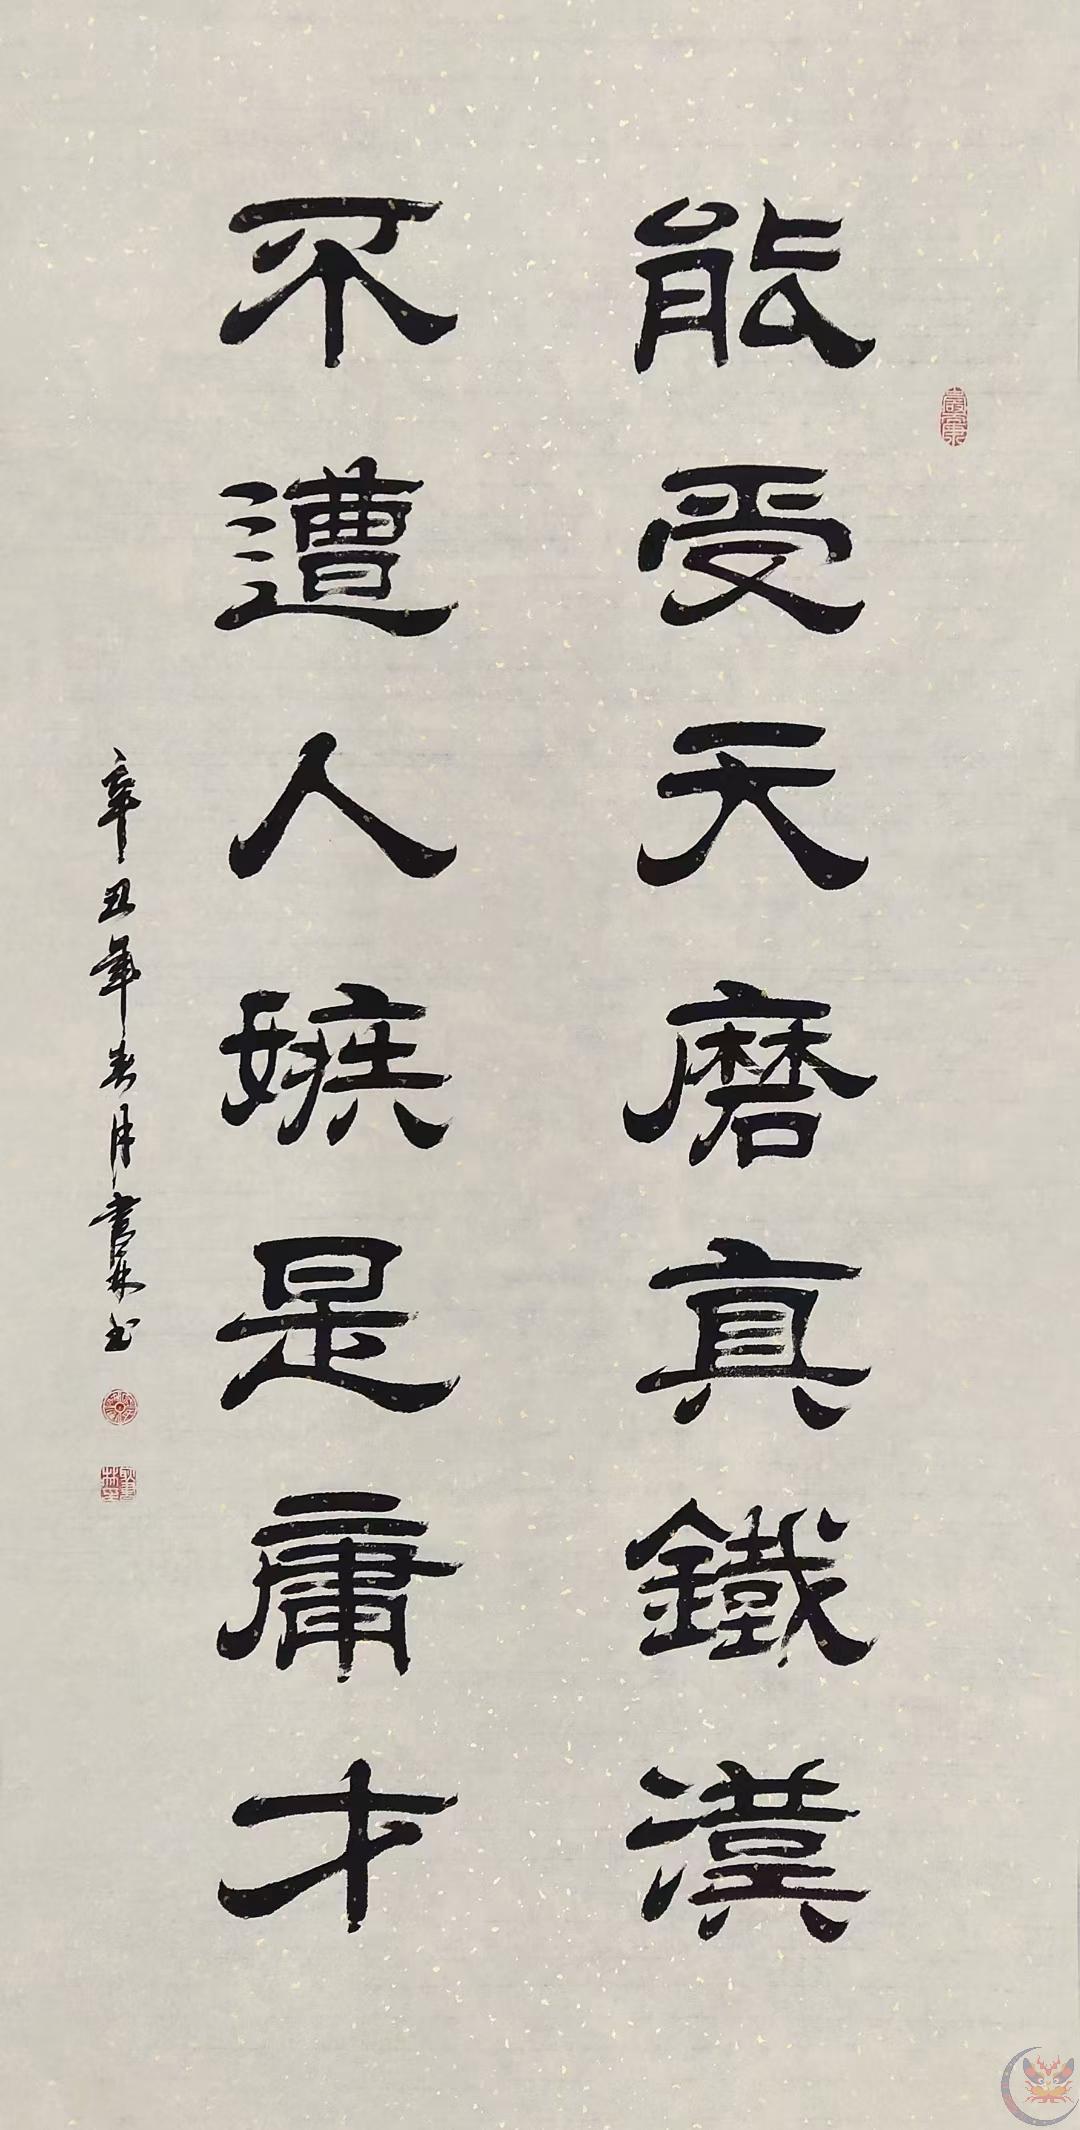 能受天磨真鐵漢
不遭人嫉是庸才
辛丑年春月書林书